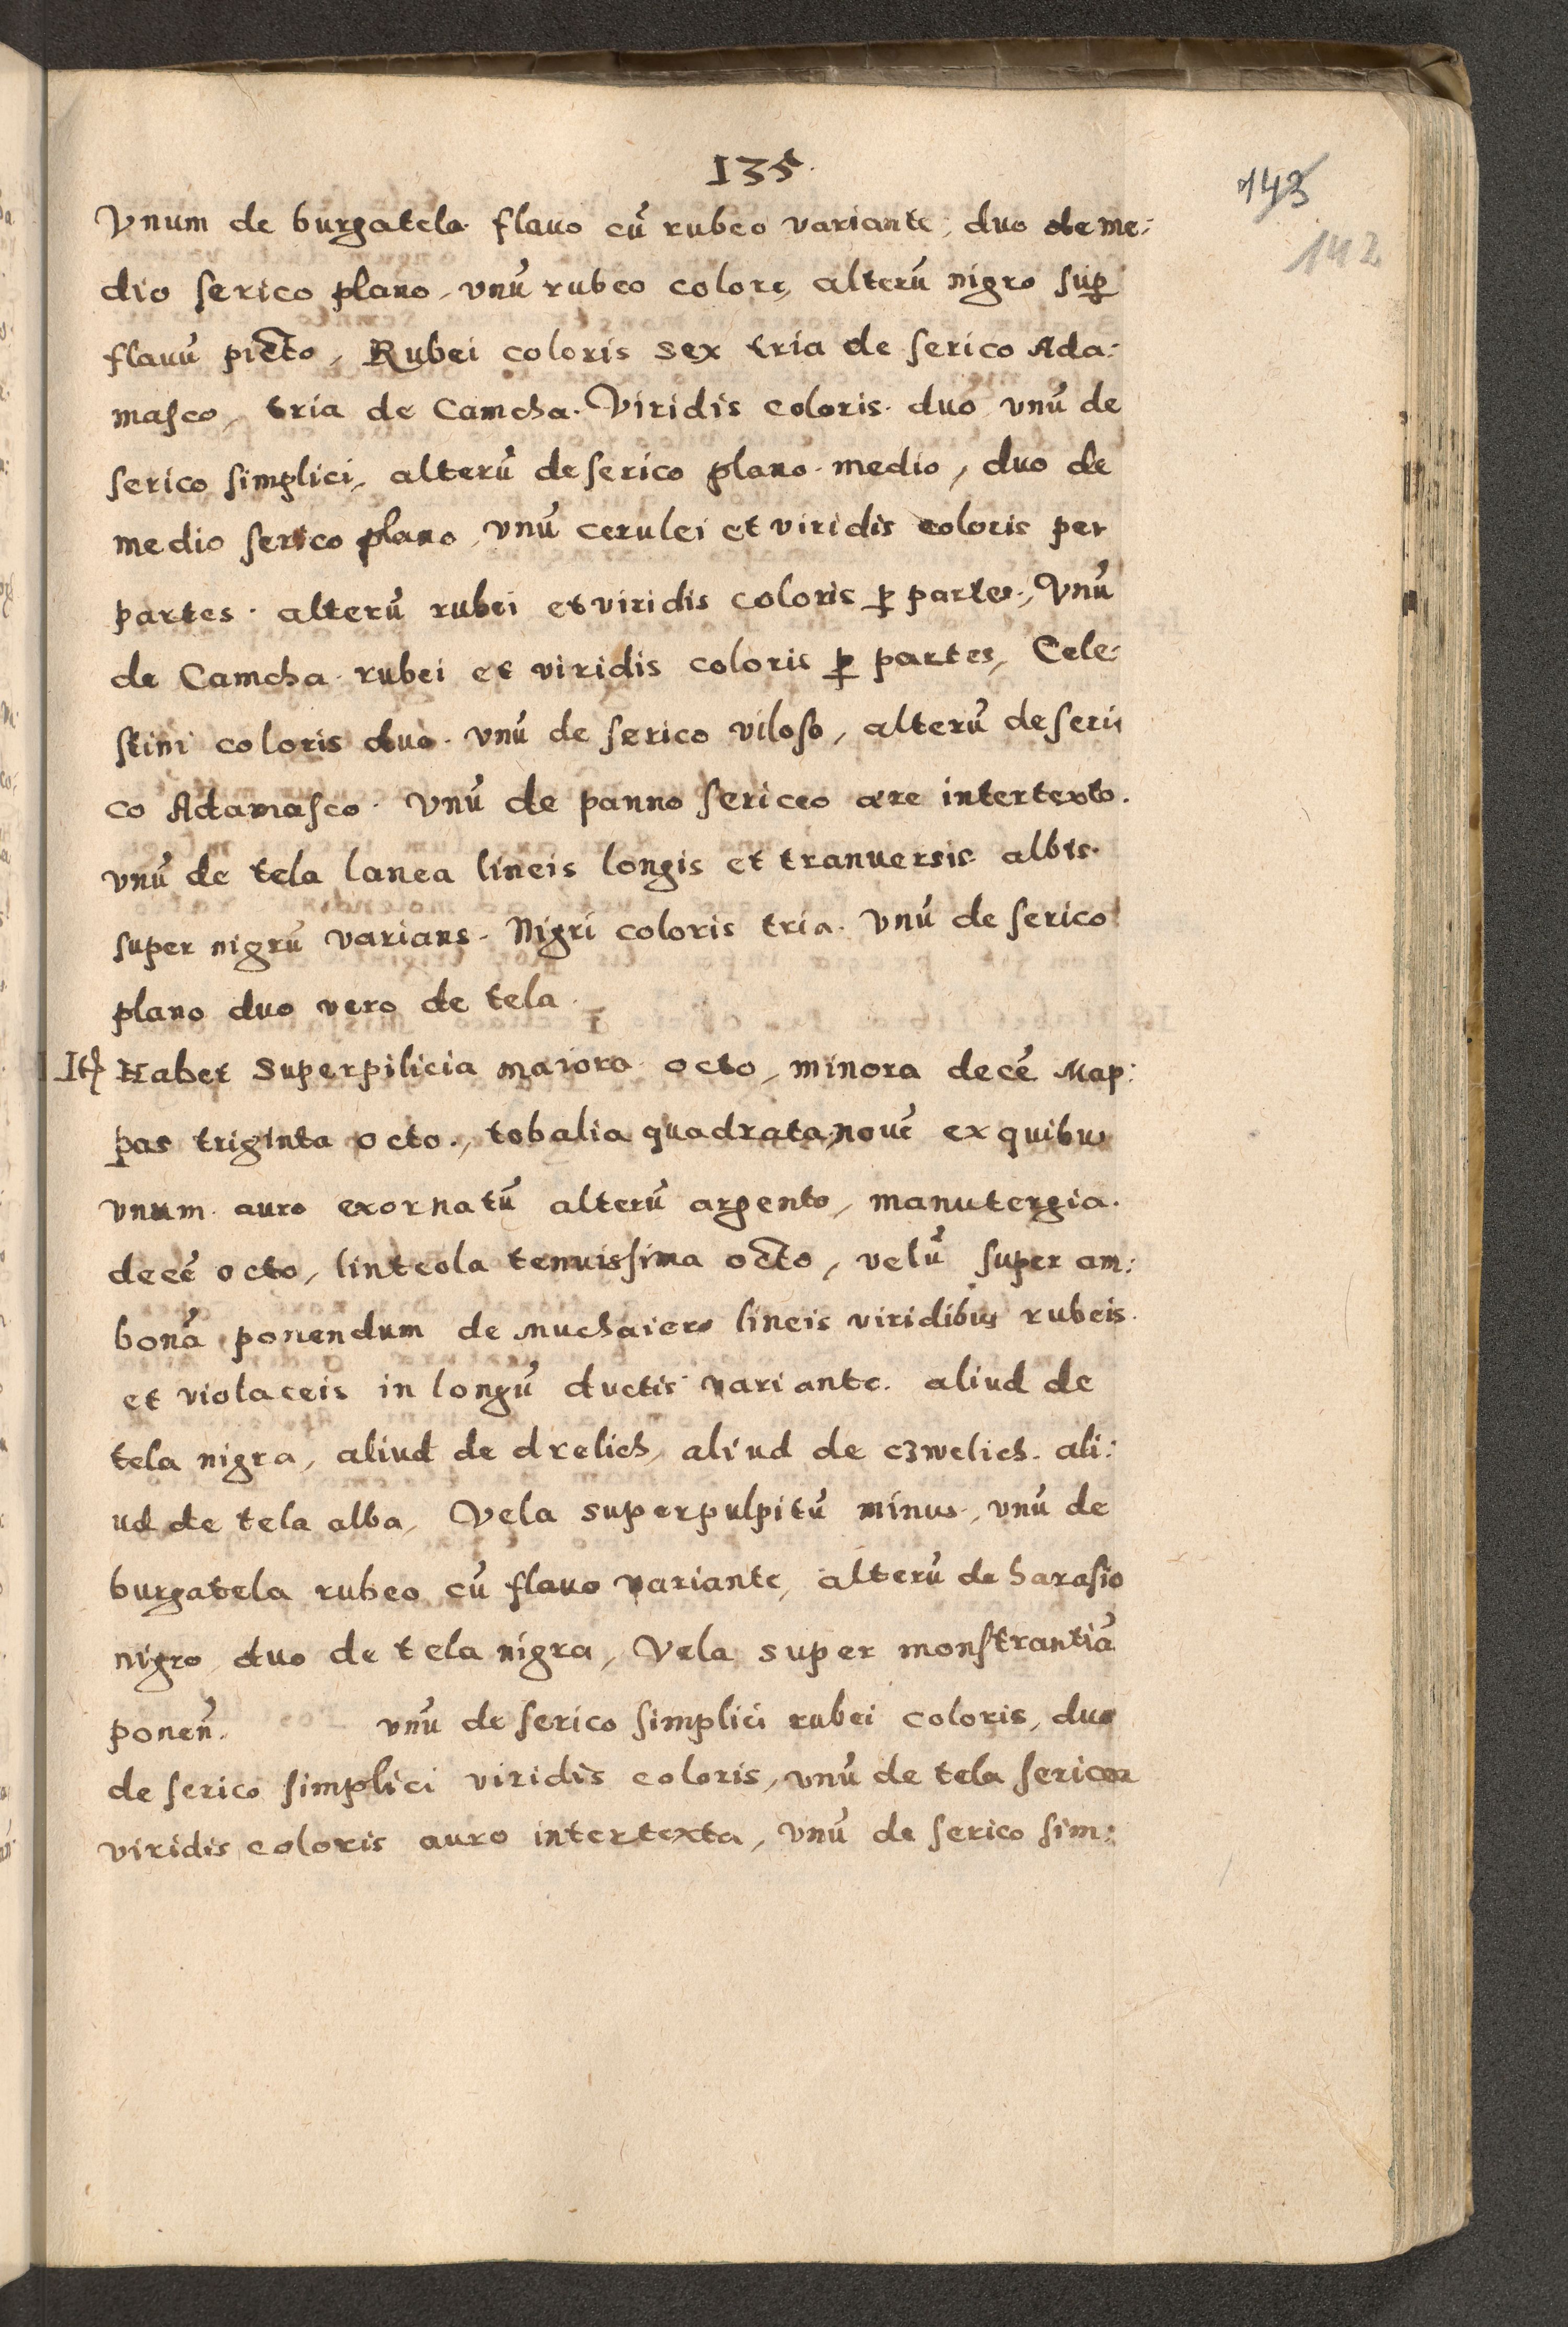 135.
143
142
Vnum de burgatela flauo cū rubeo variante, duo de me:
dio serico plano, vnū rubeo colore, alterū nigro suꝑ
flauū picto, Rubei coloris sex tria de serico Ada:
masco, tria de Camcha. Viridis coloris. duo vnū de
serico simplici, alterū de serico plano medio, duo de
medio serico plano, vnū cerulei et viridis coloris per
partes. alterū rubei et viridis coloris ꝑ partes, Vnū
de Camcha rubei et viridis coloris ꝑ partes, Cele:
stini coloris duo. vnū de serico viloso, alterū de seri:
co Adamasco. Vnū de panno sericeo aere intertexto.
vnū de tela lanea lineis longis et tranuersis albis.
super nigrū varians. Nigri coloris tria. Vnū de serico
plano duo vero de tela.
Itē Habet Superpilicia maiora octo, minora decē Map:
pas triginta octo, tobalia quadrata, nouē ex quibus
vnum auro exornatū alterū argento, manutergia.
decē octo, linteola tenuissima octo, velū super am:
bonā ponendum de muchaiero lineis viridibus rubeis.
et violaceis in longū ductis variante. aliud de
tela nigra, aliud de drelich, aliud de czwelich. ali:
ud de tela alba, Vela super pulpitū minus, vnū de
burgatela rubeo cū flauo variante, alterū de harasio
nigro, duo de tela nigra, Vela super monstrantiā
ponen̄. vnū de serico simplici rubei coloris, duo
de serico simplici viridis coloris, vnū de tela sericea
viridis coloris auro intertexta, vnū de serico sim: